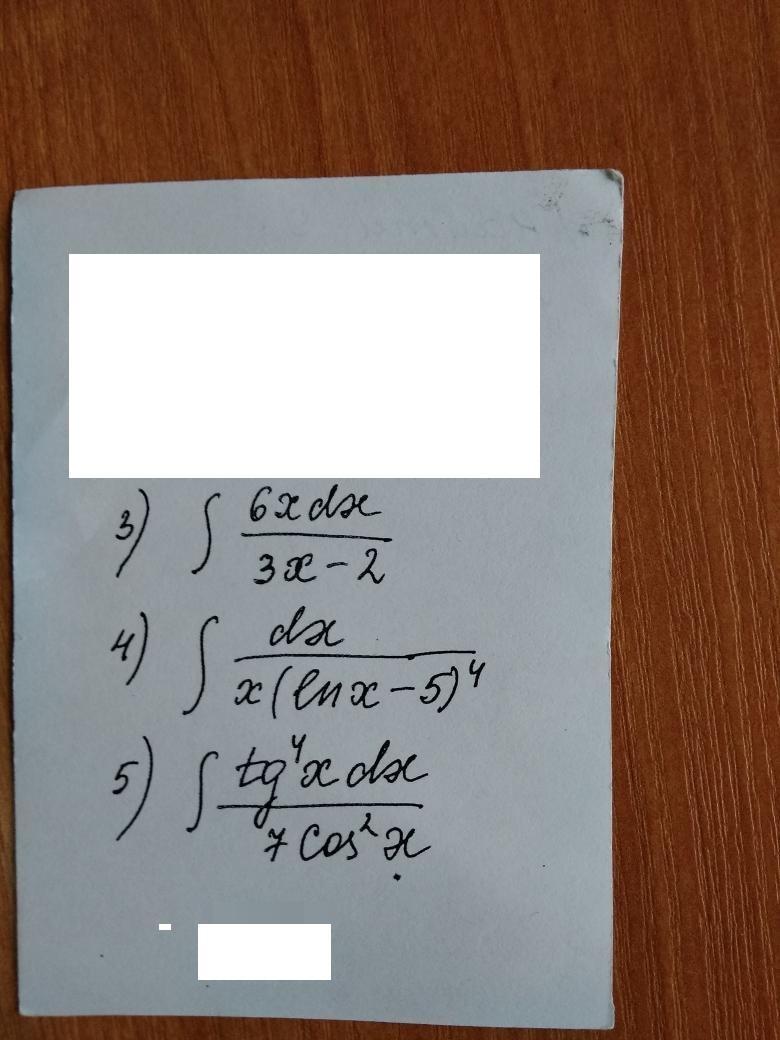 3) ∫ 6xdx / 3x-2
4) ∫ dx / x(ln x-5)⁴
5) ∫ tg⁴x dx / 7 cos²x